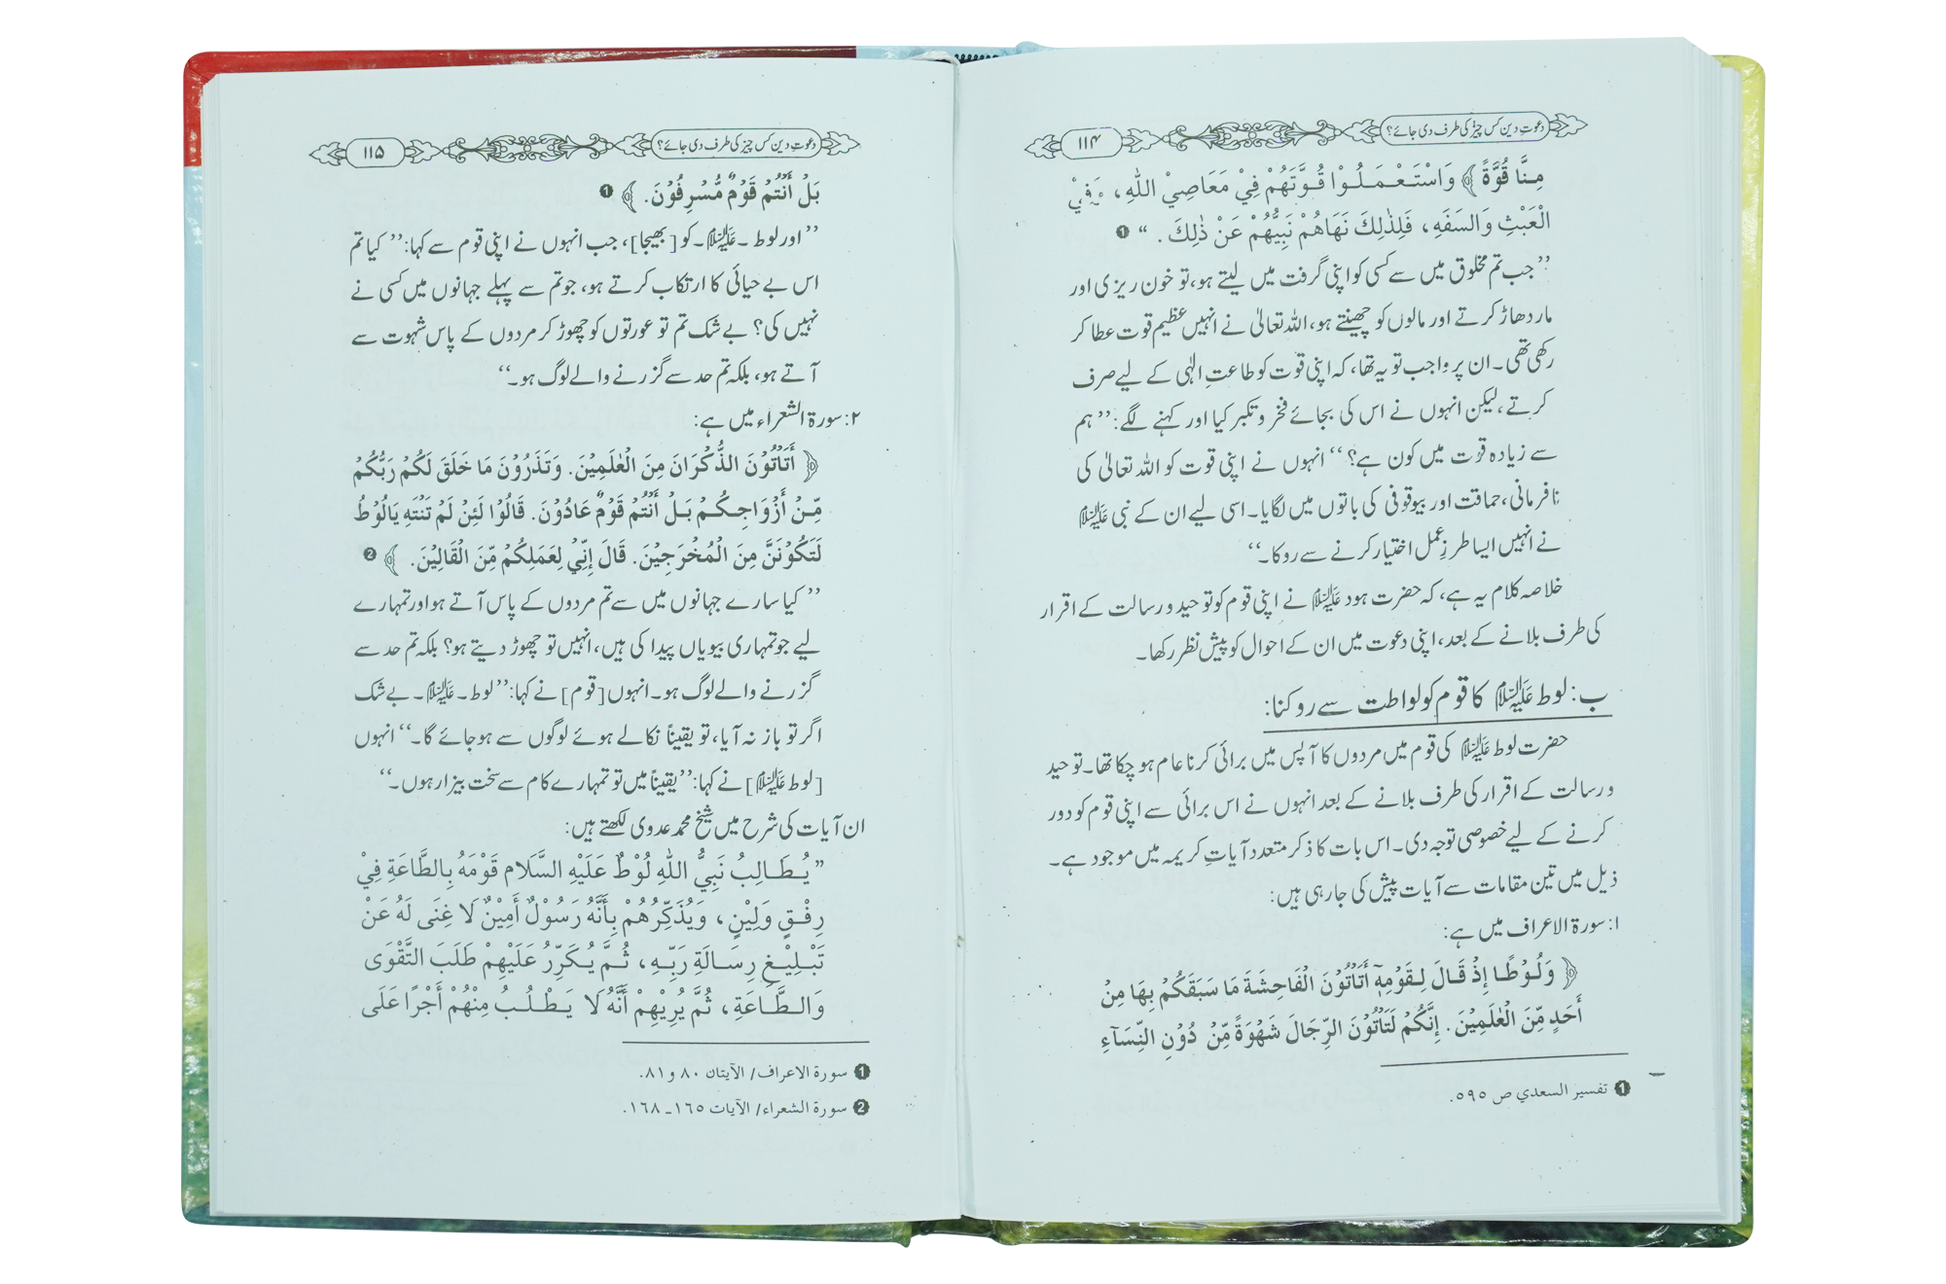 دعوتِ دین کس چیز کی طرف دی جائے؟
۱۱۴
مِنَّا قُوَّةً﴾ وَاسْتَعْمَلُوْا قُوَّتَهُمْ فِيْ مَعَاصِيْ اللّٰهِ، وَفِيْ
الْعَبْثِ وَالسَفَهِ، فَلِذٰلِكَ نَهَاهُمْ نَبِيُّهُمْ عَنْ ذٰلِكَ . “ ❶
’’جب تم مخلوق میں سے کسی کو اپنی گرفت میں لیتے ہو، تو خون ریزی اور
مار دھاڑ کرتے اور مالوں کو چھینتے ہو، اللہ تعالیٰ نے انہیں عظیم قوت عطا کر
رکھی تھی۔ ان پر واجب تو یہ تھا، کہ اپنی قوت کو طاعتِ الٰہی کے لیے صرف
کرتے، لیکن انہوں نے اس کی بجائے فخر و تکبر کیا اور کہنے لگے: ’’ہم
سے زیادہ قوّت میں کون ہے؟‘‘ انہوں نے اپنی قوت کو اللہ تعالیٰ کی
نافرمانی، حماقت اور بیوقوفی کی باتوں میں لگایا۔ اسی لیے ان کے نبی علیہ السلام
نے انہیں ایسا طرزِ عمل اختیار کرنے سے روکا۔‘‘
خلاصہ کلام یہ ہے، کہ حضرت ہود علیہ السلام نے اپنی قوم کو توحید و رسالت کے اقرار
کی طرف بلانے کے بعد، اپنی دعوت میں ان کے احوال کو پیش نظر رکھا۔
ب: لوط علیہ السلام کا قوم کو لواطت سے روکنا:
حضرت لوط علیہ السلام کی قوم میں مردوں کا آپس میں برائی کرنا عام ہو چکا تھا۔ توحید
و رسالت کے اقرار کی طرف بلانے کے بعد انہوں نے اس برائی سے اپنی قوم کو دور
کرنے کے لیے خصوصی توجہ دی۔ اس بات کا ذکر متعدد آیاتِ کریمہ میں موجود ہے۔
ذیل میں تین مقامات سے آیات پیش کی جا رہی ہیں:
۱: سورۃ الاعراف میں ہے:
﴿وَلُوْطًا إِذْ قَالَ لِقَوْمِهٖٓ أَتَاْتُوْنَ الْفَاحِشَةَ مَا سَبَقَكُمْ بِهَا مِنْ
أَحَدٍ مِّنَ الْعٰلَمِيْنَ. إِنَّكُمْ لَتَاْتُوْنَ الرِّجَالَ شَهْوَةً مِّنْ دُوْنِ النِّسَآءِ
❶ تفسير السعدي ص ٥٩٥.
دعوتِ دین کس چیز کی طرف دی جائے؟
۱۱۵
بَلْ أَنْتُمْ قَوْمٌ مُّسْرِفُوْنَ.﴾ ❶
’’اور لوط ۔علیہ السلام۔ کو [بھیجا]، جب انہوں نے اپنی قوم سے کہا: ’’کیا تم
اس بے حیائی کا ارتکاب کرتے ہو، جو تم سے پہلے جہانوں میں کسی نے
نہیں کی؟ بے شک تم تو عورتوں کو چھوڑ کر مردوں کے پاس شہوت سے
آتے ہو، بلکہ تم حد سے گزرنے والے لوگ ہو۔‘‘
۲: سورۃ الشعراء میں ہے:
﴿أَتَاْتُوْنَ الذُّكْرَانَ مِنَ الْعٰلَمِيْنَ. وَتَذَرُوْنَ مَا خَلَقَ لَكُمْ رَبُّكُمْ
مِّنْ أَزْوَاجِكُمْ بَلْ أَنْتُمْ قَوْمٌ عَادُوْنَ. قَالُوْا لَئِنْ لَمْ تَنْتَهِ يَالُوْطُ
لَتَكُوْنَنَّ مِنَ الْمُخْرَجِيْنَ. قَالَ إِنِّيْ لِعَمَلِكُمْ مِّنَ الْقَالِيْنَ. ﴾ ❷
’’کیا سارے جہانوں میں سے تم مردوں کے پاس آتے ہو اور تمہارے
لیے جو تمہاری بیویاں پیدا کی ہیں، انہیں تو چھوڑ دیتے ہو؟ بلکہ تم حد سے
گزرنے والے لوگ ہو۔ انہوں [قوم] نے کہا: ’’لوط ۔علیہ السلام۔ بے شک
اگر تو باز نہ آیا، تو یقیناً نکالے ہوئے لوگوں سے ہو جائے گا۔‘‘ انہوں
[لوط علیہ السلام] نے کہا: ’’یقیناً میں تو تمہارے کام سے سخت بیزار ہوں۔‘‘
ان آیات کی شرح میں شیخ محمد عدوی لکھتے ہیں:
”يُطَالِبُ نَبِيُّ اللّٰهِ لُوْطٌ عَلَيْهِ السَّلَام قَوْمَهُ بِالطَّاعَةِ فِيْ
رِفْقٍ وَلِيْنٍ، وَيُذَكِّرُهُمْ بِأَنَّهُ رَسُوْلٌ أَمِيْنٌ لَا غِنَى لَهُ عَنْ
تَبْلِيْغِ رِسَالَةِ رَبِّهِ، ثُمَّ يُكَرِّرُ عَلَيْهِمْ طَلَبَ التَّقْوَى
وَالطَّاعَةِ، ثُمَّ يُرِيْهِمْ أَنَّهُ لَا يَطْلُبُ مِنْهُمْ أَجْرًا عَلَى
❶ سورة الاعراف/ الآيتان ٨٠ و٨١.
❷ سورة الشعراء/ الآيات ١٦٥ـ١٦٨.